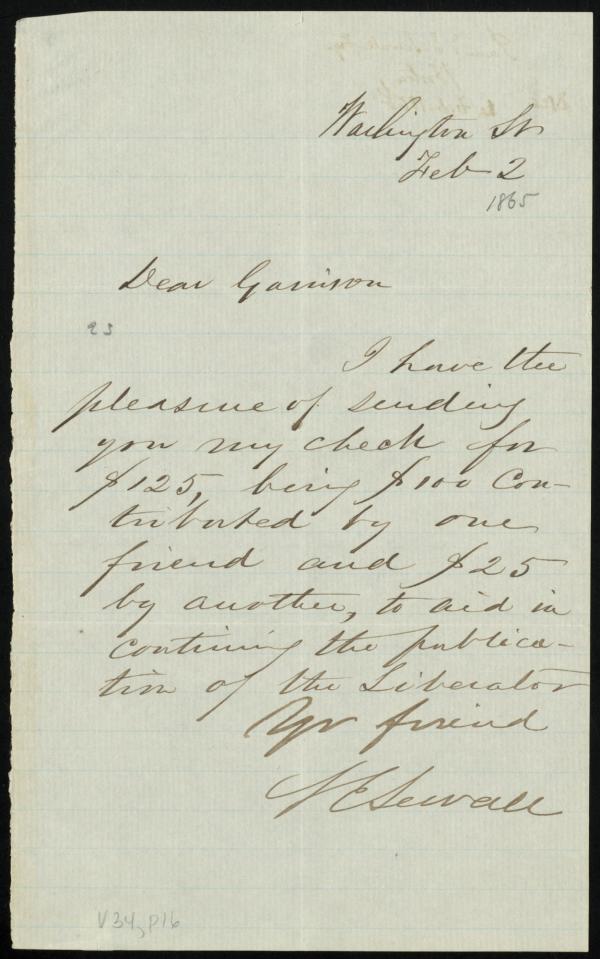 Washington St
Feb 2
1865
Dear Garrison
I have the
pleasure of sending
you my check for
$125, being $100 con-
tributed by one
friend and $25
by another, to aid in
continuing the publica-
tion of the Liberator
Yr friend
S E Sewall
V34, P16